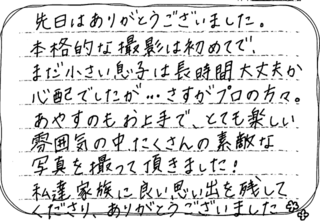 先日はありがとうございました。
本格的な撮影は初めてで、
まだ小さい息子は長時間大丈夫か
心配でしたが…さすがプロの方々。
あやすのもお上手で、とても楽しい
雰囲気の中たくさんの素敵な
写真を撮って頂きました!
私達家族に良い思い出を残して
くださり、ありがとうございました